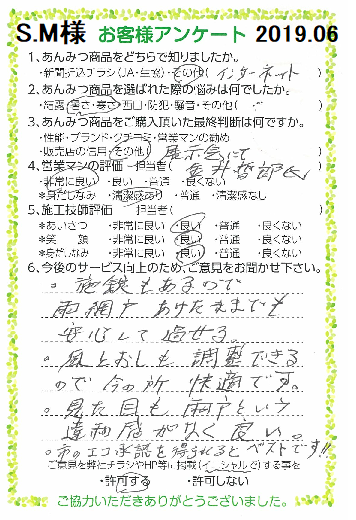 S.M様 お客様アンケート 2019.06
1、あんみつ商品をどちらで知りましたか。
・新聞折込チラシ(JA・生協)・その他( インターネット )
2、あんみつ商品を選ばれた際の悩みは何でしたか。
・結露・暑さ・寒さ・西日・防犯・騒音・その他( )
3、あんみつ商品をご購入頂いた最終判断は何ですか。
・性能・ブランド・クチコミ・営業マンの勧め
・販売店の信用・その他( 展示会にて )
4、営業マンの評価 -担当者( 哲郎氏 )
・非常に良い ・良い ・普通 ・良くない
*身だしなみ ・清潔感あり ・普通 ・清潔感なし
5、施工技師評価 担当者( )
*あいさつ ・非常に良い ・良い ・普通 ・良くない
*笑 顔 ・非常に良い ・良い ・普通 ・良くない
*身だしなみ ・非常に良い ・良い ・普通 ・良くない
6、今後のサービス向上のため、ご意見をお聞かせ下さい。
。施錠もあるので
雨網戸あけたままでも
安心して過せる。
。風とおしも調整できる
ので今の所快適です。
。見た目も雨戸という
違和感がなく良い。
。市のエコ承認を得られるとベストです!!
ご意見を弊社チラシやHP等に掲載(イニシャルで)する事を
・許可する ・許可しない
ご協力いただきありがとうございました。